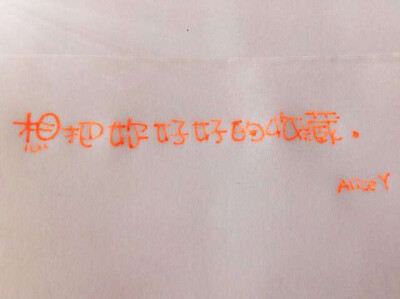 想把你好好的收藏.
Alice Y